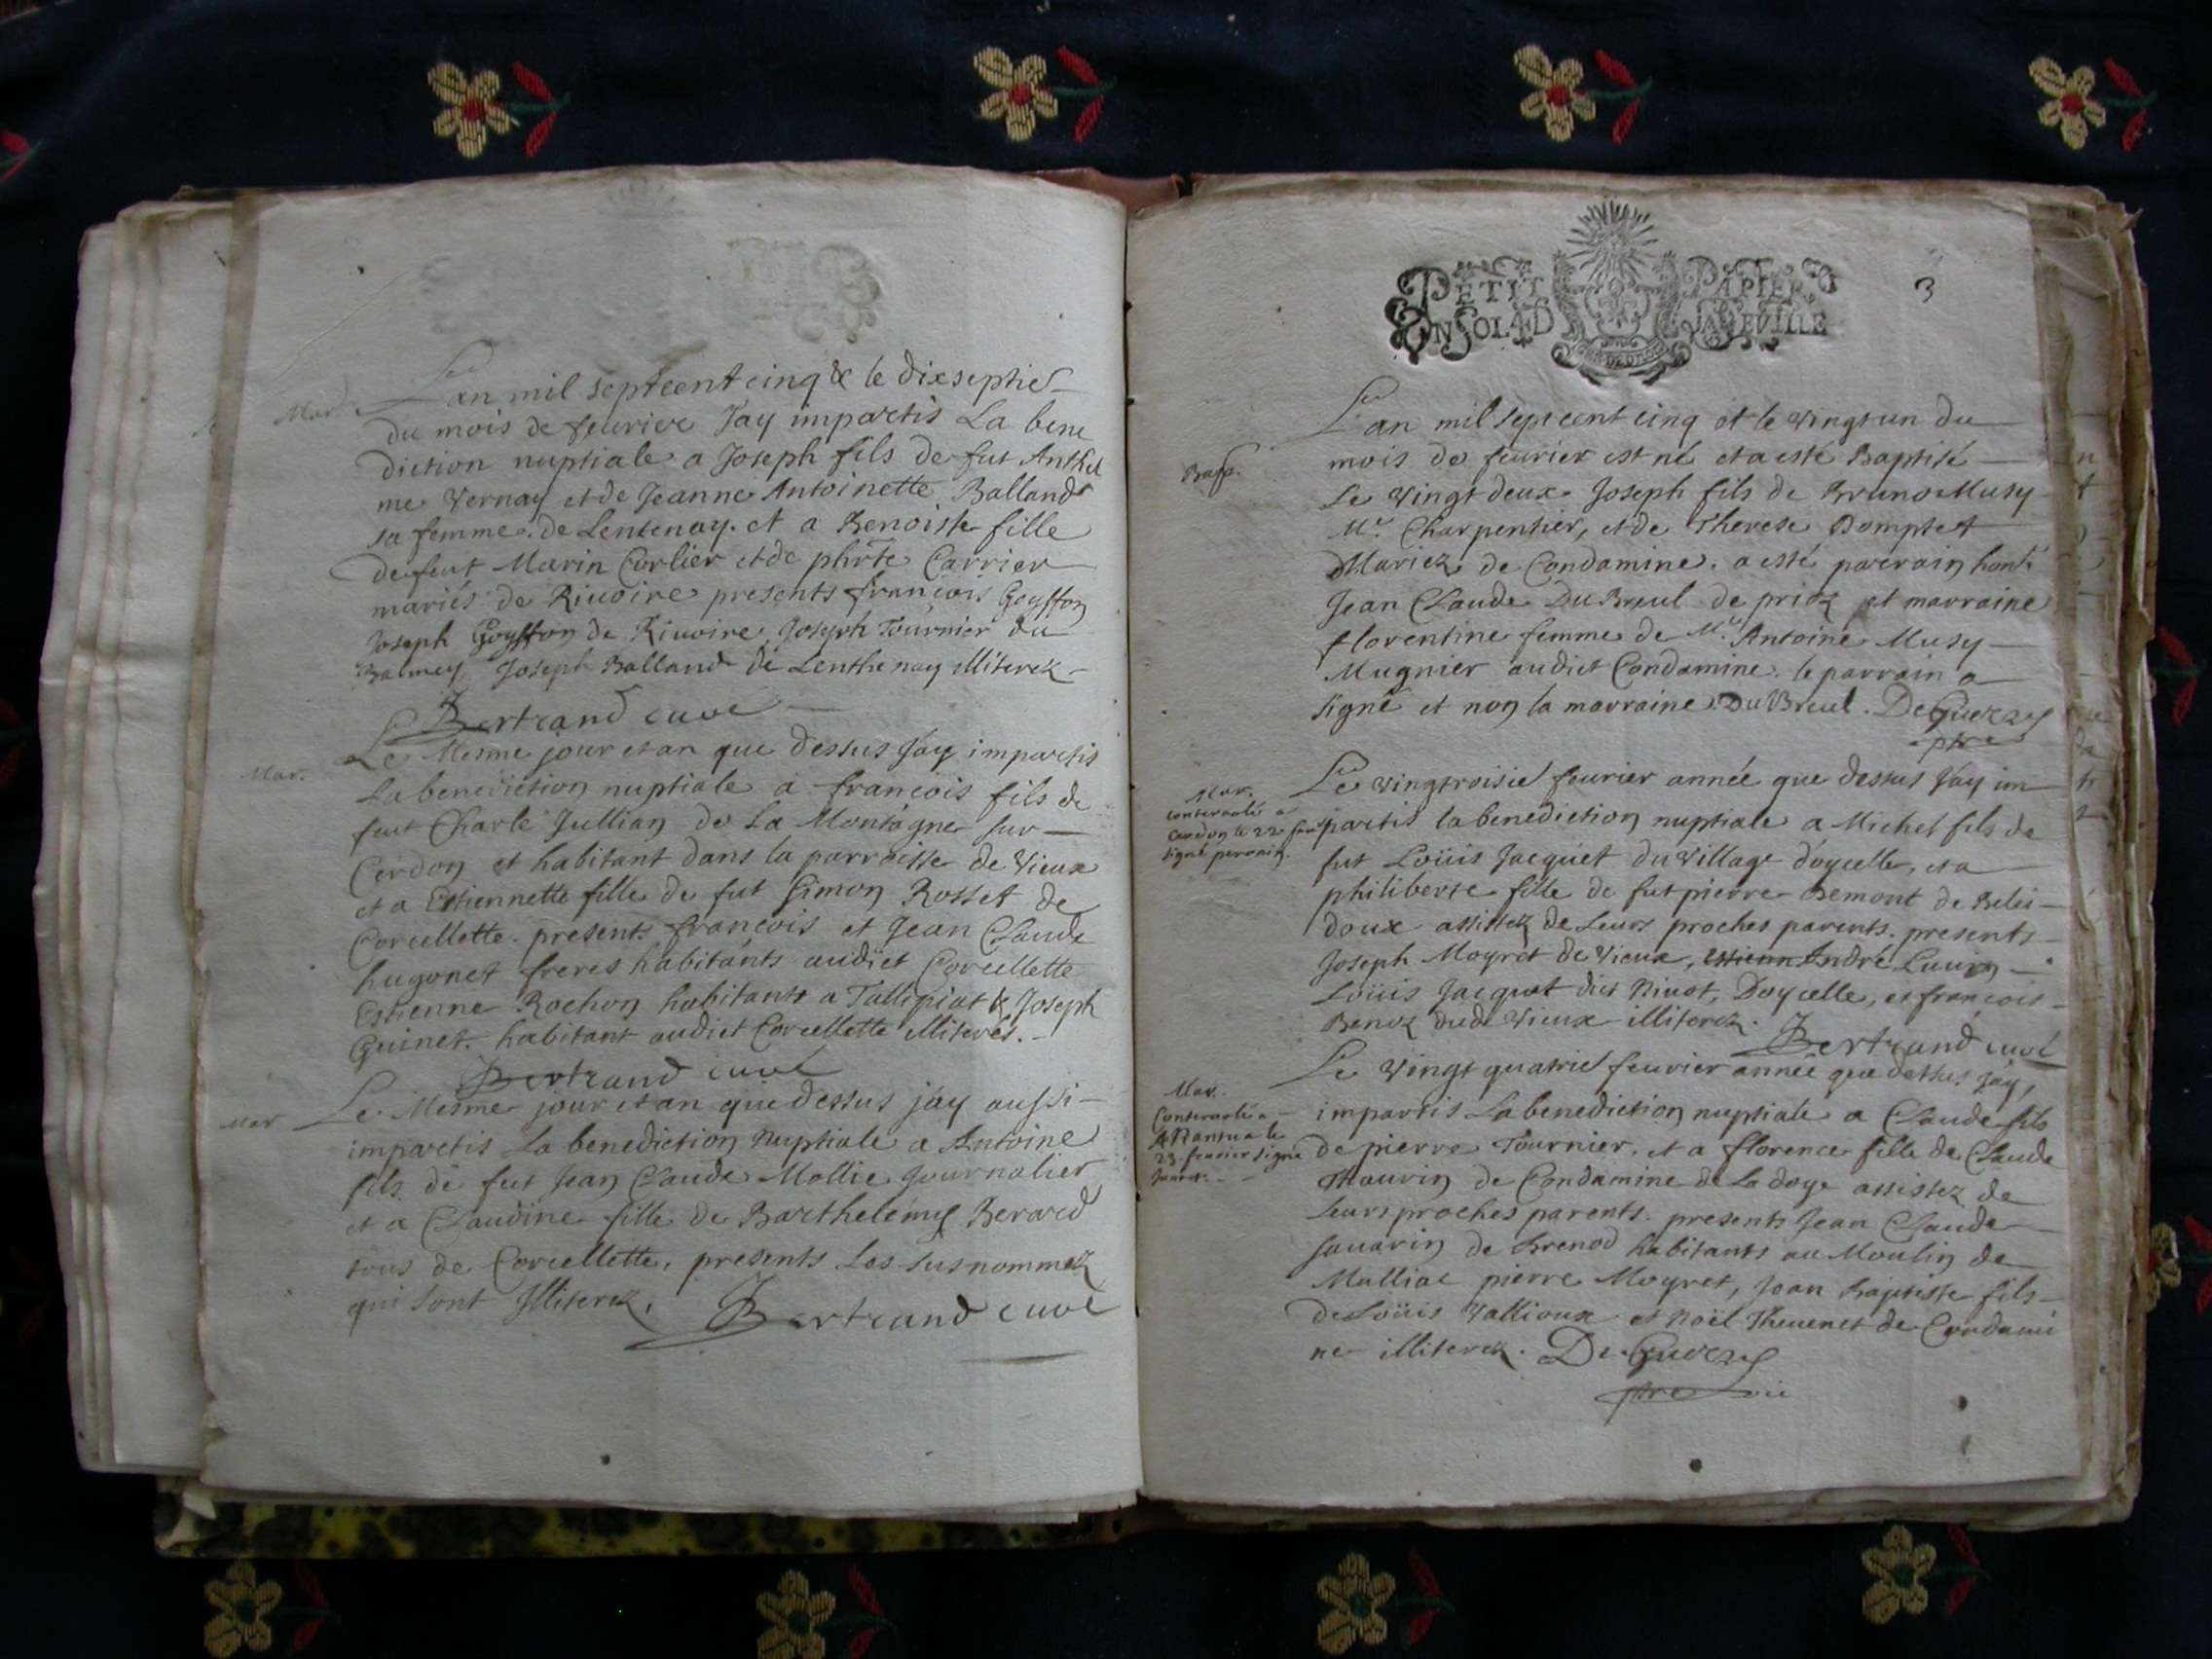 Mar.
L'an mil sept cent cinq & le dixseptie
du mois de feurier Jay impartis La bene
diction nuptiale a Joseph fils de fut Anthel
me Vernay et de Jeanne Antoinette Balland
sa femme de Lentenay. et a Benoiste fille
de feut Marin Corlier et de phrte Carrier
mariés de Riuoire presents françois Goyffon
Joseph Goyffon de Riuoire Joseph Tournier du
Balmey Joseph Balland de Lenthenay illiterez
Bertrand curé
Mar.
Le Mesme jour et an que dessus Jay impartis
La benediction nuptiale a françois fils de
feut Charle Jullian de La Montagne sur
Cerdon et habitant dans la parroisse de Vieux
et a Estiennette fille de fut Simon Rosset de
Corcellette. presents françois et Jean Claude
hugonet freres habitants audict Corcellette
Estienne Rochon habitants a Tallipiat & Joseph
Guinet. habitant audict Corcellette illiterés.
Bertrand curé
Mar
Le Mesme jour et an que dessus jay aussi
impartis La benediction Nuptiale a Antoine
fils de fut Jean Claude Mollie Journalier
et a Claudine fille de Barthelemy Berard
tous de Corcellette, presents Les susnommez
qui sont Illiterez.
Bertrand curé
PETIT PAPIER
UN SOL 4 D LA FEUILLE
3
Bapt.
L'an mil sept cent cinq et le vingt un du
mois de feurier est né et a esté Baptisé
Le vingt deux Joseph fils de Bruno Musy
Mr. Charpentier, et de Therese Domptet
Mariez de Condamine. a esté parrain hon.
Jean Claude Du Breul de priez et marraine
florentine femme de Mr. Antoine Musy
Mugnier audict Condamine. le parrain a
signé et non la marraine. Du Breul.
ptre
Mar.
contractó a
Cerdon le 22 feur
signé perrain.
Le vingtroisie feurier année que dessus Jay im
partis la benediction nuptiale a Michel fils de
fut Loüis Jacquet du village d'oycelle, et a
philiberte fille de fut pierre Demont de Belei
doux assistez de Leurs proches parents. presents
Joseph Moyret de Vieux, André Lauin
Loüis Jacquet dict Niuot, Doycelle, et françois
Benoz dud. Vieux illiterez. Bertrand curé
Mar.
Contractó a
Nantua le
23. feurier signé
Le vingt quatrie feurier année que dessus Jay,
impartis La benediction nuptiale a Claude fils
de pierre Tournier, et a florence fille de Claude
Maurin de Condamine de La doye assistez de
Leurs proches parents. presents Jean Claude
sauarin de Brenod habitants au Moulin de
Malliac pierre Moyret, Jean Baptiste fils
de Loüis Vallioux et Noël Theuenet de Condami
ne illiterez.
ptre vic